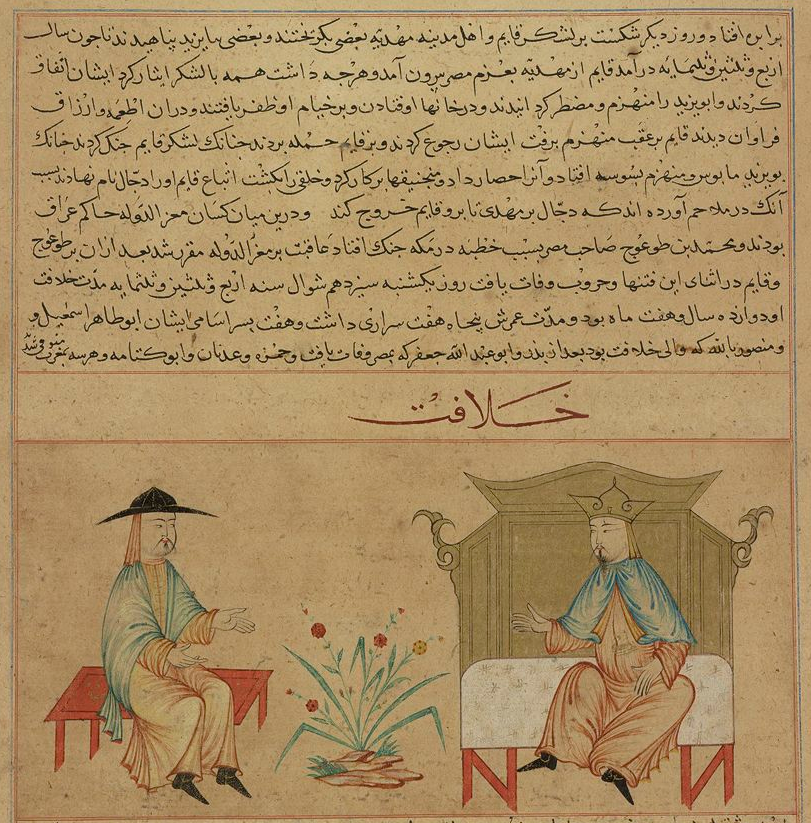 برابره افتاد و روز دیکر شکست بر لشکر قایم و اهل مدینه مهدیه بعضی بکریختند و بعضی بابویزید پناهیدند تا چون سال
اربع و ثلثین و ثلثمایه درآمد قایم از مهدیه بعزم مصر بیرون آمد و هرچه داشت همه با لشکر ایثار کرد ایشان اتفاق
کردند و ابویزید را منهزم و مضطر کردانیدند و در خانها اوفتادن و بر خیام او ظفر یافتند و در ان اطعمه و ارزاق
فراوان دیدند قایم بر عقب منهزم برفت ایشان رجوع کردند و بر قایم حمله بردند چنانک لشکر قایم جنک کردند چنانک
بویزید مایوس و منهزم بسوسه افتاد و آنرا حصار داد و منجنیقها بر کار کرد و خلقی را بکشت اتباع قایم او را دجّال نام نهادند بسبب
آنک در ملاحم آورده اند که دجّال بر مهدی تا بر و قایم خروج کند و درین میان کسان معز الدوله حاکم عراق
بودند و محمد بن طوغوج صاحب مصر بسبب خطبه در مکه جنک افتاد عاقبت بر معز الدوله مقرر شد بعد ازان بر طوغوج
و قایم در اثنای این فتنها و حروب وفات یافت روز یکشنبه سیزدهم شوال سنه اربع و ثلثین و ثلثمایه مدّت خلافت
او دوازده سال و هفت ماه بود و مدّت عمرش پنجاه هفت سراری داشت و هفت پسر اسامی ایشان ابوطاهر اسمعیل و
و منصور بالله که والی خلافت بود بعد از پدر و ابوعبد الله جعفر که بمصر وفات یافت و حمزه و عدنان و ابوکتامه و هرسه بمغرب متوفی شدند
خلافت